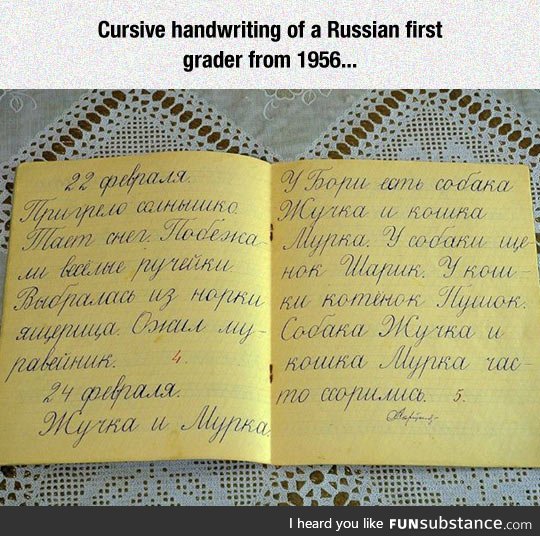 Cursive handwriting of a Russian first
grader from 1956...
22 февраля.
Пригрело солнышко.
Тает снег. Побежа-
ли весёлые ручейки.
Выбралась из норки
ящерица. Ожил му-
равейник. 4.
24 февраля.
Жучка и Мурка.
У Бори есть собака
Жучка и кошка
Мурка. У собаки ще-
нок Шарик. У кош-
ки котёнок Пушок.
Собака Жучка и
кошка Мурка час-
то ссорились. 5.
I heard you like FUNsubstance.com